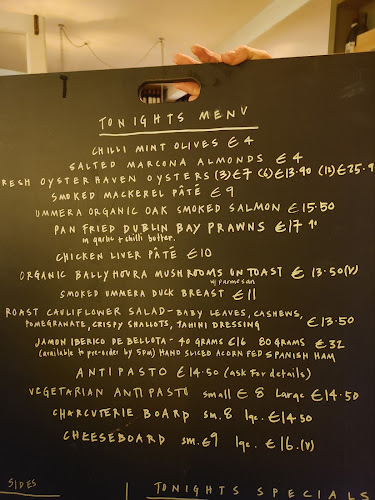 TONIGHTS MENU
CHILLI MINT OLIVES € 4
SALTED MARCONA ALMONDS € 4
RESH OYSTERHAVEN OYSTERS (3)€7 (6)€13.90 (12)€25.9
SMOKED MACKEREL PÂTÉ € 9
UMMERA ORGANIC OAK SMOKED SALMON €15.50
PAN FRIED DUBLIN BAY PRAWNS €17
in garlic + chilli butter.
CHICKEN LIVER PÂTÉ €10
ORGANIC BALLYHOURA MUSHROOMS ON TOAST € 13.50(V)
w/ parmesan
SMOKED UMMERA DUCK BREAST €11
ROAST CAULIFLOWER SALAD - BABY LEAVES, CASHEWS,
POMEGRANATE, CRISPY SHALLOTS, TAHINI DRESSING €13.50
JAMON IBERICO DE BELLOTA - 40 GRAMS €16 80 GRAMS €32
(available to pre-order by 5pm) HAND SLICED ACORN FED SPANISH HAM
ANTIPASTO €14.50 (ask For details)
VEGETARIAN ANTIPASTO small € 8 Large €14.50
CHARCUTERIE BOARD sm. 8 lge. €14.50
CHEESEBOARD sm. €9 lge. €16.(V)
SIDES
TONIGHTS SPECIALS